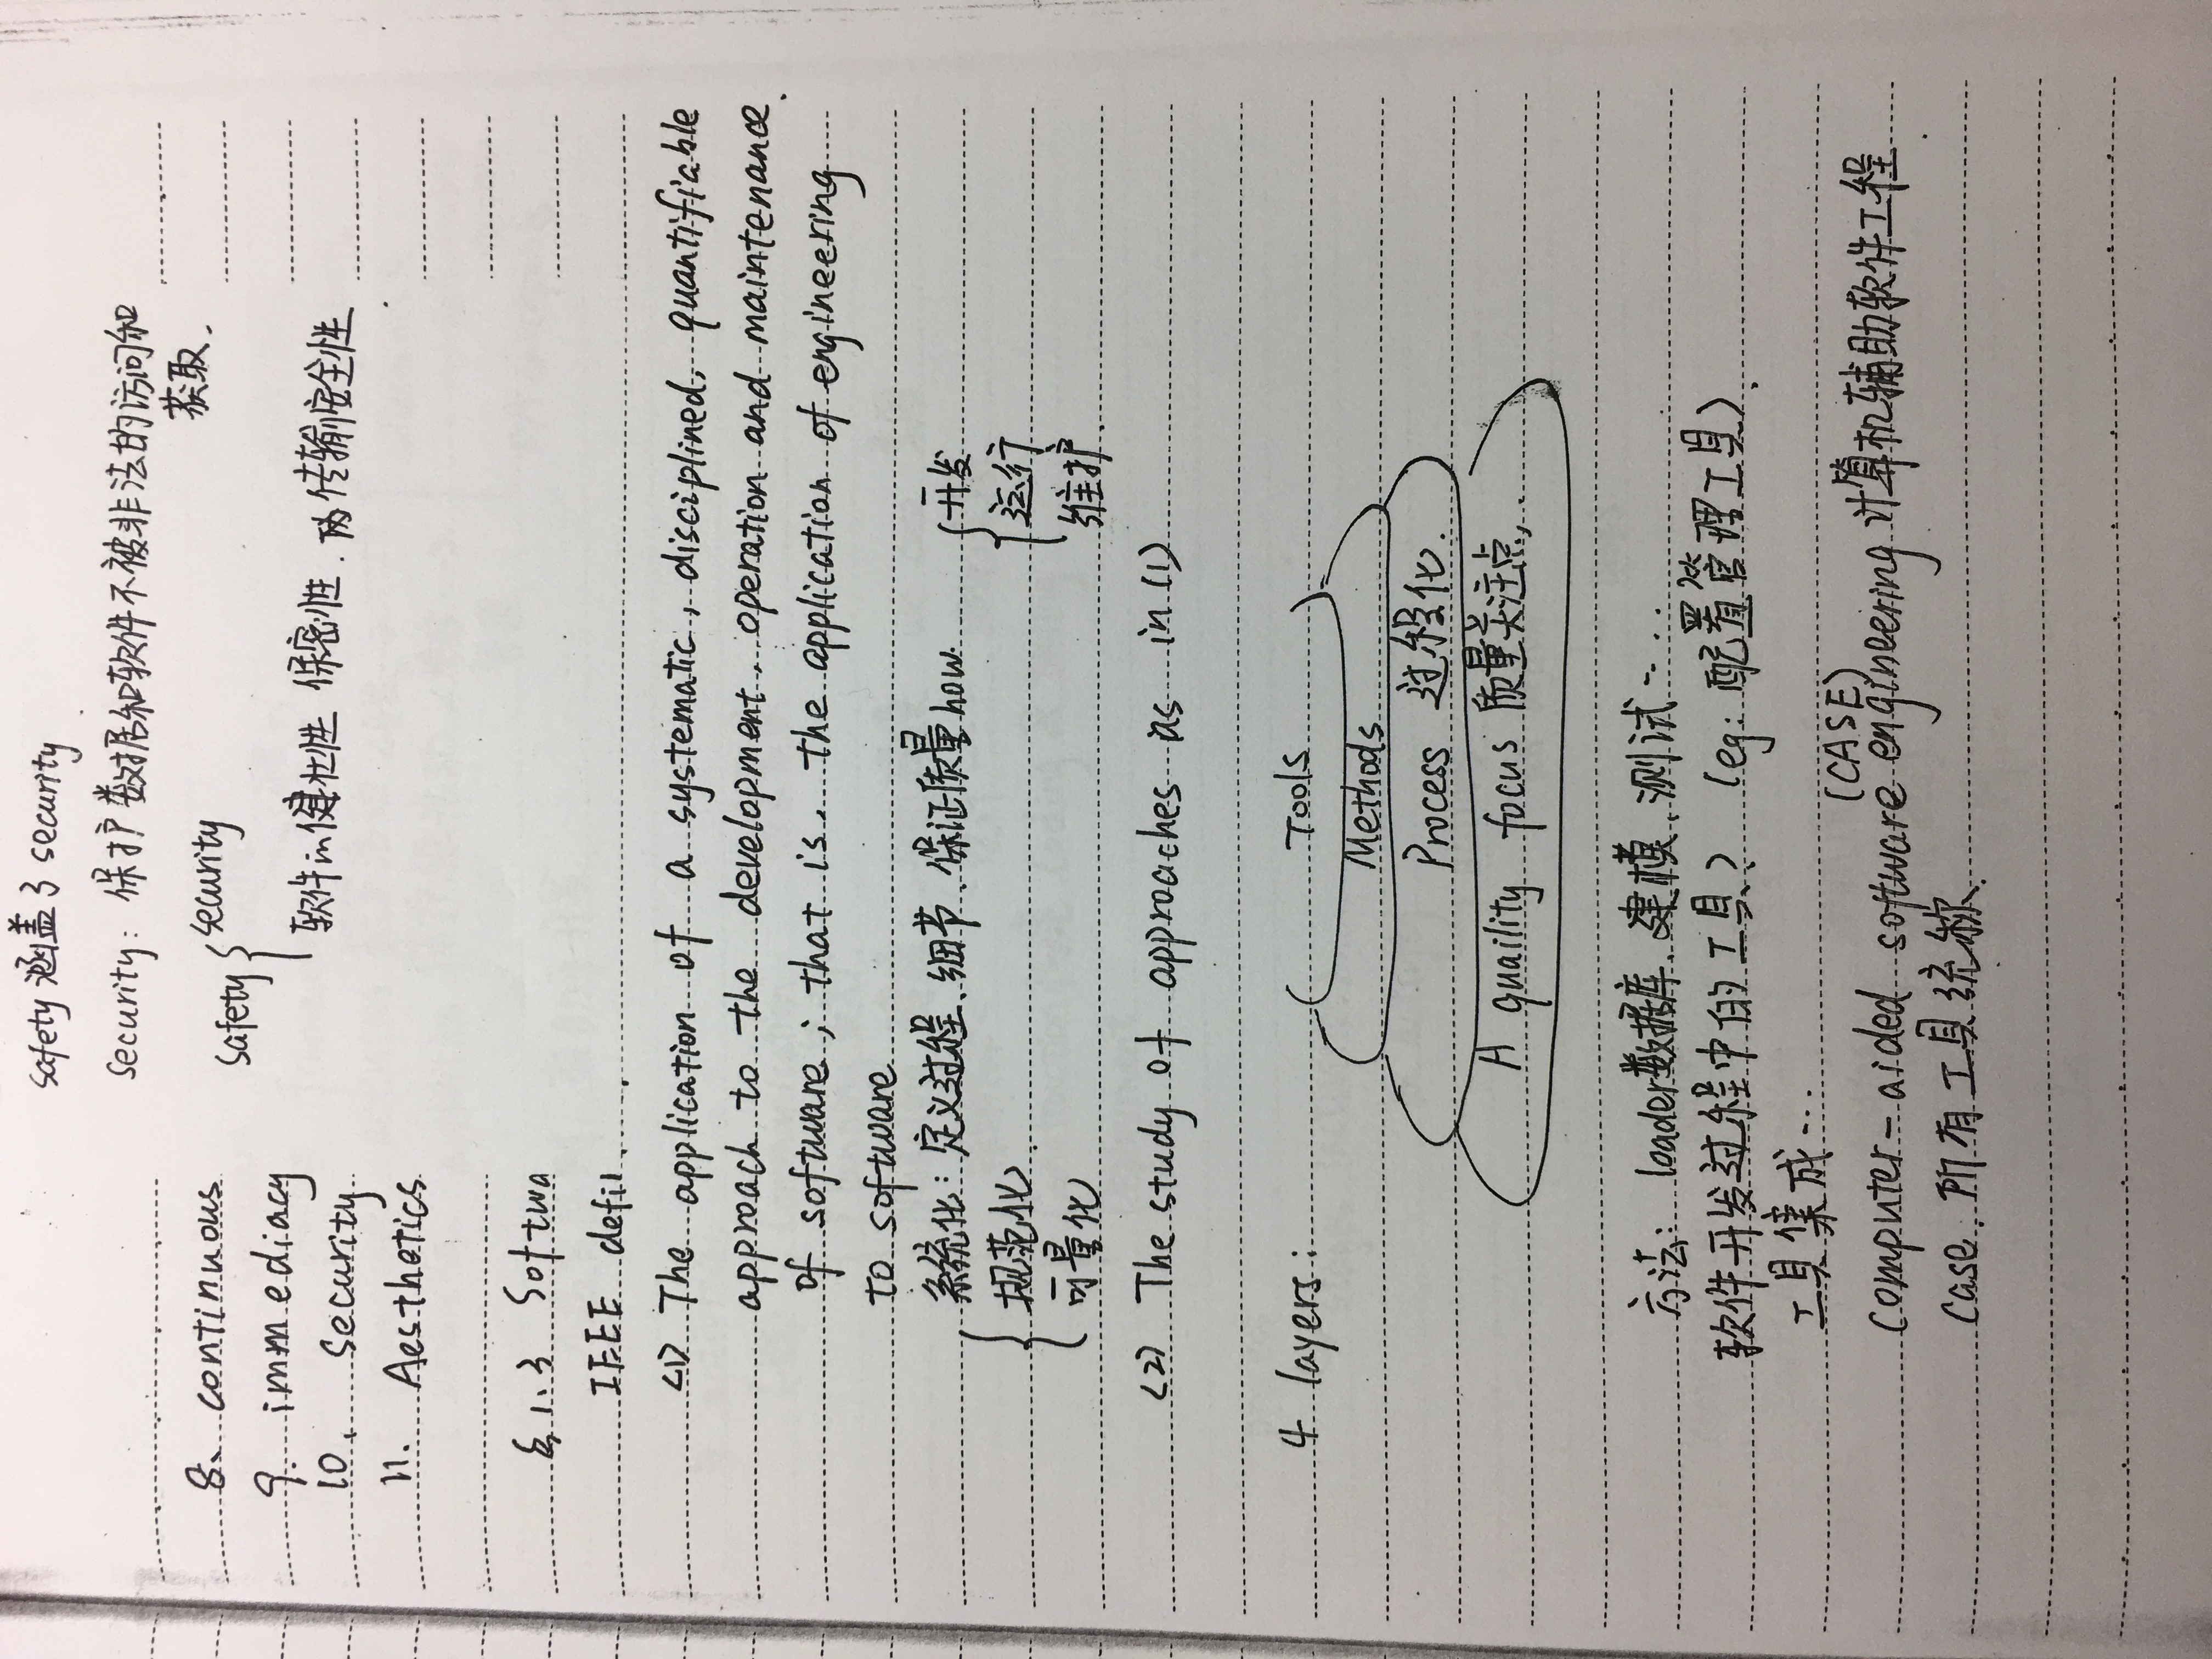 safety 涵盖了 security
security: 保护数据和软件不被非法的访问和
获取.
safety { security
软件的健壮性 保密性. 传输安全性
8、 continuous
9. immediacy
10. Security
11. Aesthetics
§1.3 Softwa
IEEE defi
<1> The application of a systematic, disciplined, quantifiable
approach to the development, operation and maintenance
of software; that is, the application of engineering
to software
系统化: 定义过程、细节、保证质量how.
规范化.
可量化
开发
运行
维护.
<2> The study of approaches as in (1)
4 layers:
Tools
Methods
Process 过程化.
A quaility focus 质量关注点,
方法: loader数据库、建模、测试…
软件开发过程中的工具? (eg: 配置管理工具).
工具集成…
(CASE)
Computer-aided software engineering 计算机辅助软件工程.
case. 所有工具统称.